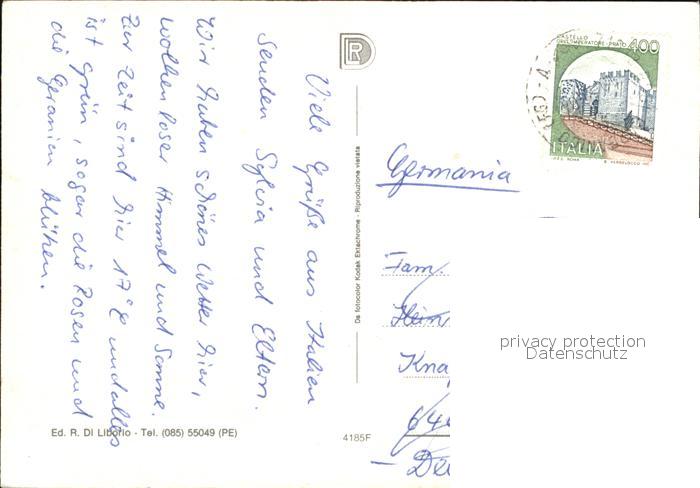 Viele Grüße aus Italien
senden Sylvia und Eltern.
Wir haben schönes Wetter hier,
wolkenloser Himmel und Sonne.
Zur Zeit sind hier 17°C und alles
ist grün, sogar die Rosen und
die Geranien blühen.
Ed. R. Di Liborio - Tel. (085) 55049 (PE)
4185F
Da fotocolor Kodak Ektachrome - Riproduzione vietata
R
CASTELLO
DELL'IMPERATORE - PRATO 400
ITALIA
Germania
Fam.
Hein
Kna
64
- De
privacy protection
Datenschutz